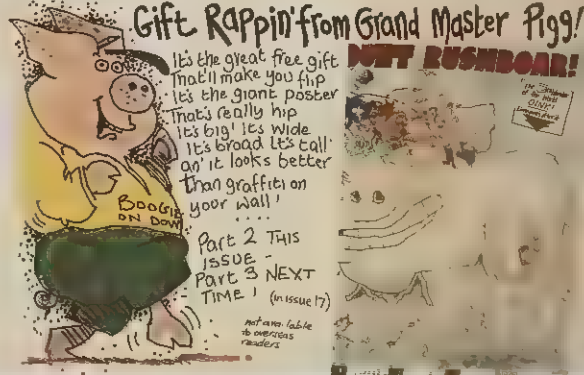 Gift Rappin' from Grand Master Pigg!
It's the great free gift
That'll make you flip
It's the giant poster
That's really hip
It's big! It's wide
It's broad It's tall
an' it looks better
Than graffiti on
your wall!
....
Part 2 THIS
ISSUE -
Part 3 NEXT
TIME! (in issue 17)
not available
to overseas
readers
BOOGIE
ON DOWN
RUSHBOAR!
OINK!